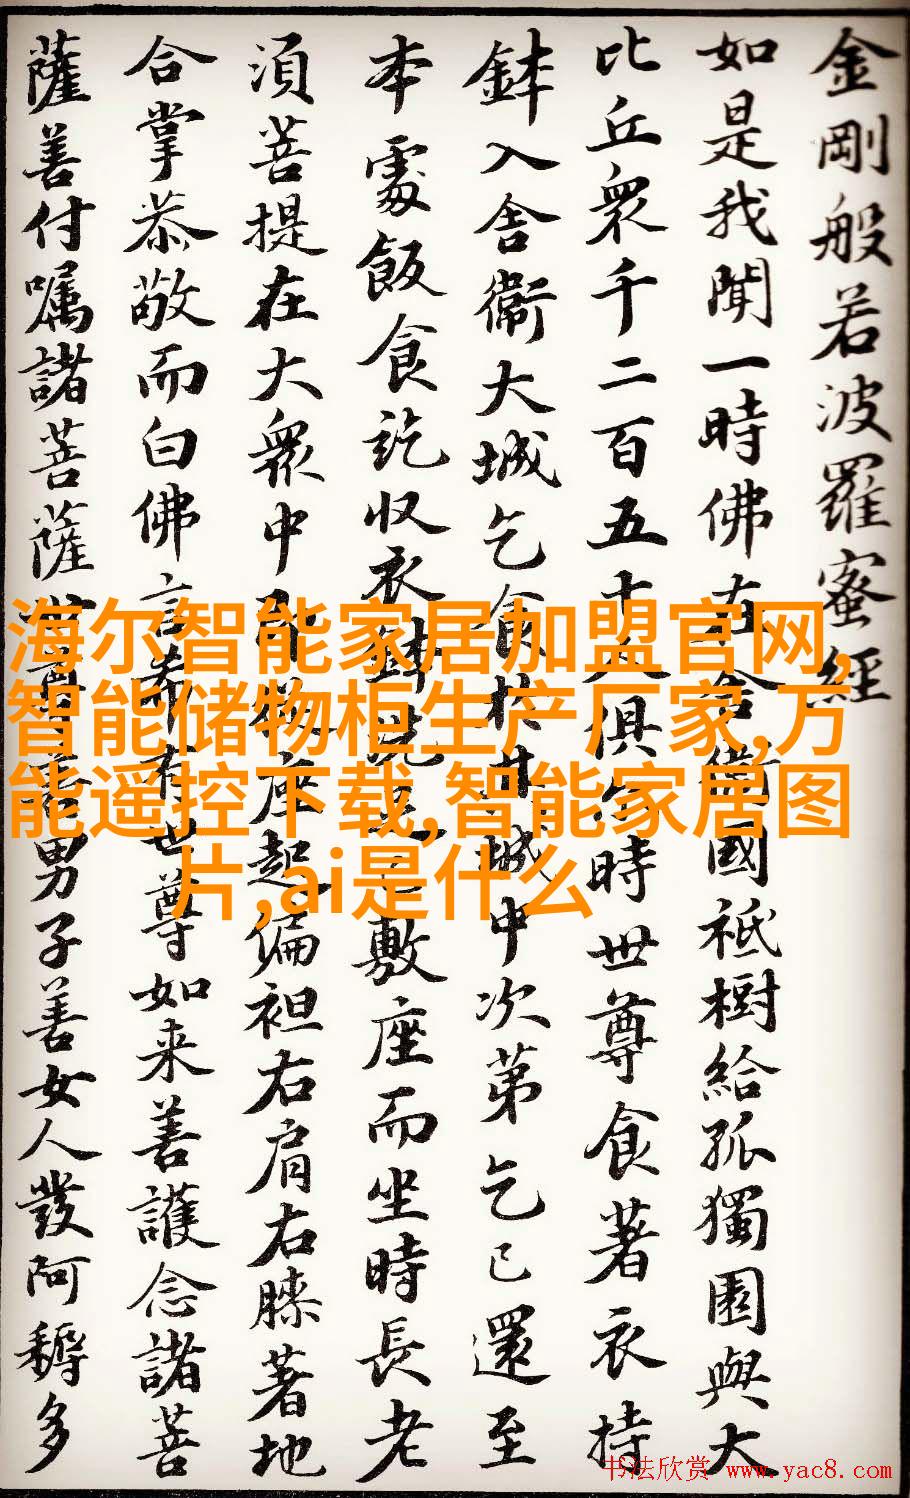 金剛般若波羅蜜經
如是我聞一時佛在舍衛國祇樹給孤獨園與大
比丘衆千二百五十人俱尒時世尊食著衣持
鉢入舍衞大城乞食於其城中次第乞已還至
本處飯食訖收衣鉢洗足已敷座而坐時長老
須菩提在大衆中即從座起偏袒右肩右膝著地
合掌恭敬而白佛言希有世尊如来善護念諸菩
薩善付囑諸菩薩世尊善男子善女人發阿耨多
海尔智能家居加盟官网,
智能储物柜生产厂家,万
能遥控下载,智能家居图
片,ai是什么
书法欣赏 www.yac8.com